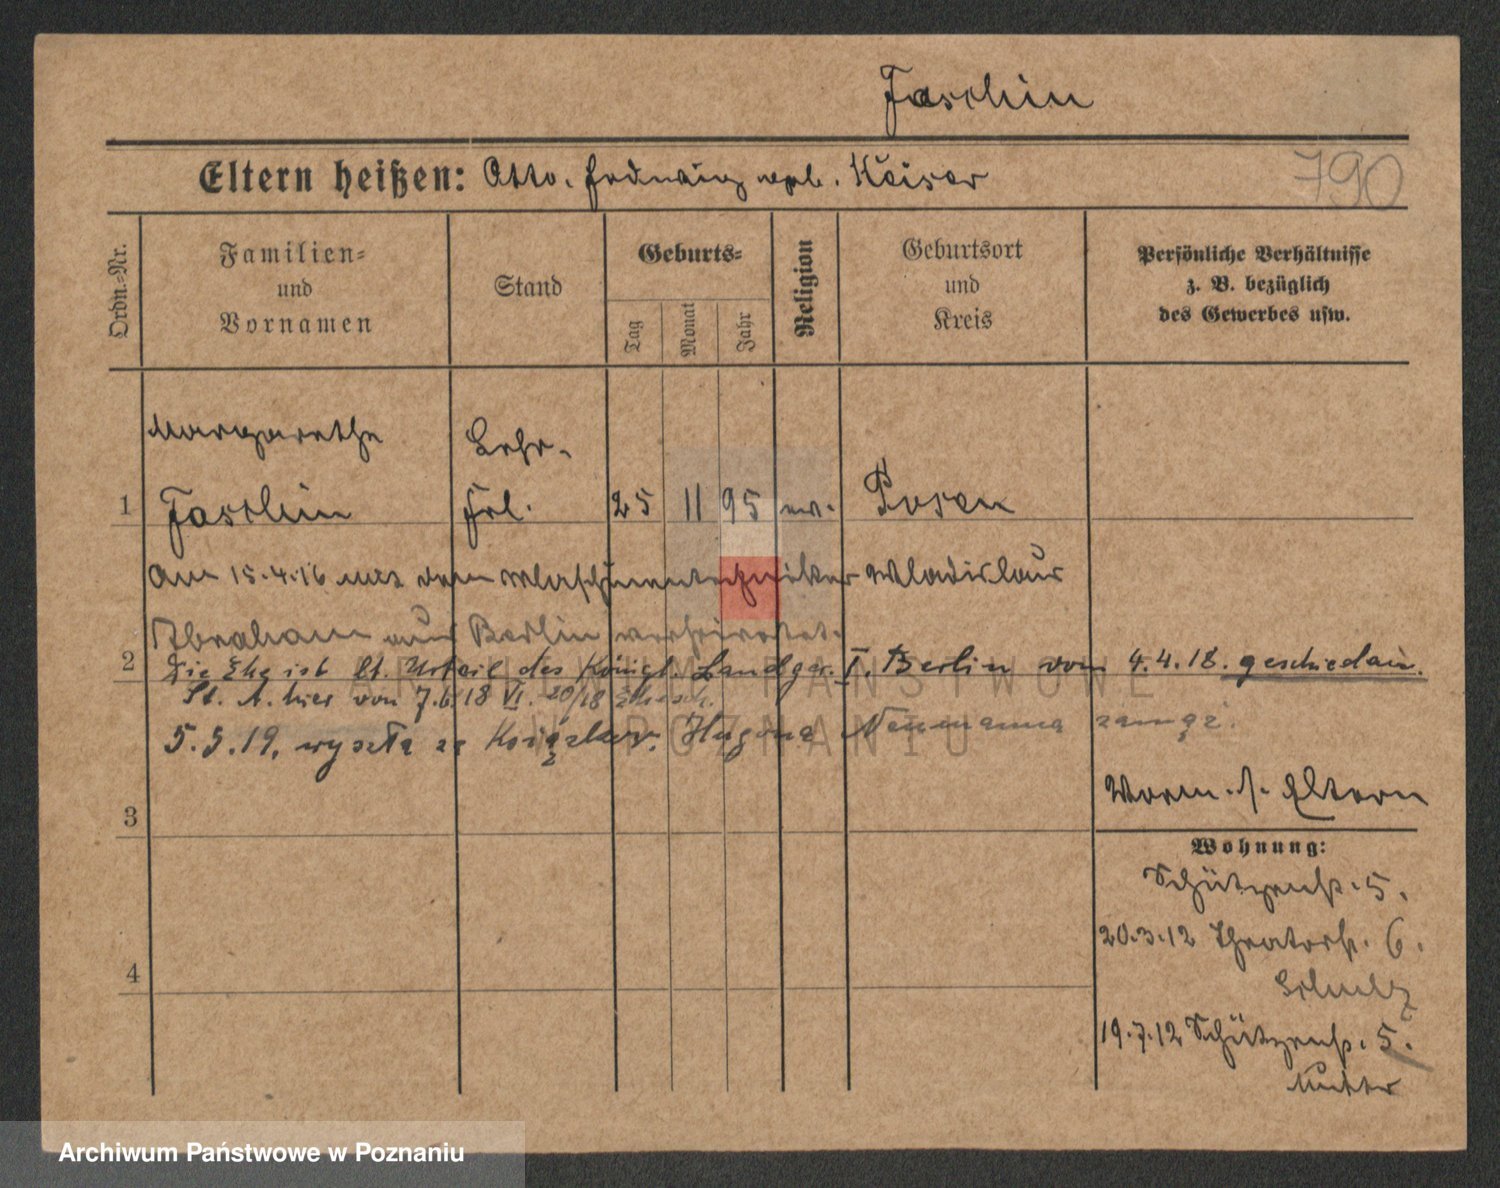 Faschin
Eltern heißen: Otto, geb. Kaiser
790
Ordn.-Nr.
Familien- und Vornamen
Stand
Geburts-
Tag
Monat
Jahr
Religion
Geburtsort und Kreis
Persönliche Verhältnisse z. B. bezüglich des Gewerbes usw.
Margarethe
Lehr-
1 Faschin Frl. 25 11 95 ev. Posen
Am 15.4.16 mit dem Maschinentechniker Wladislaus
Abraham aus Berlin verheiratet.
2 Die Ehe ist lt. Urteil des Königl. Landger. I. Berlin vom 4.4.18. geschieden.
St. A. hier von 7.6.18 VI. 20/18
5.5.19, wyszła za Hugona Neumanna zamąż.
3
Vorm. s. Eltern
Wohnung:
Schützenstr. 5.
20.3.12 Theaterstr. 6.
Schulz
4
19.7.12 Schützenstr. 5.
Mutter
ARCHIWUM PAŃSTWOWE
W POZNANIU
Archiwum Państwowe w Poznaniu